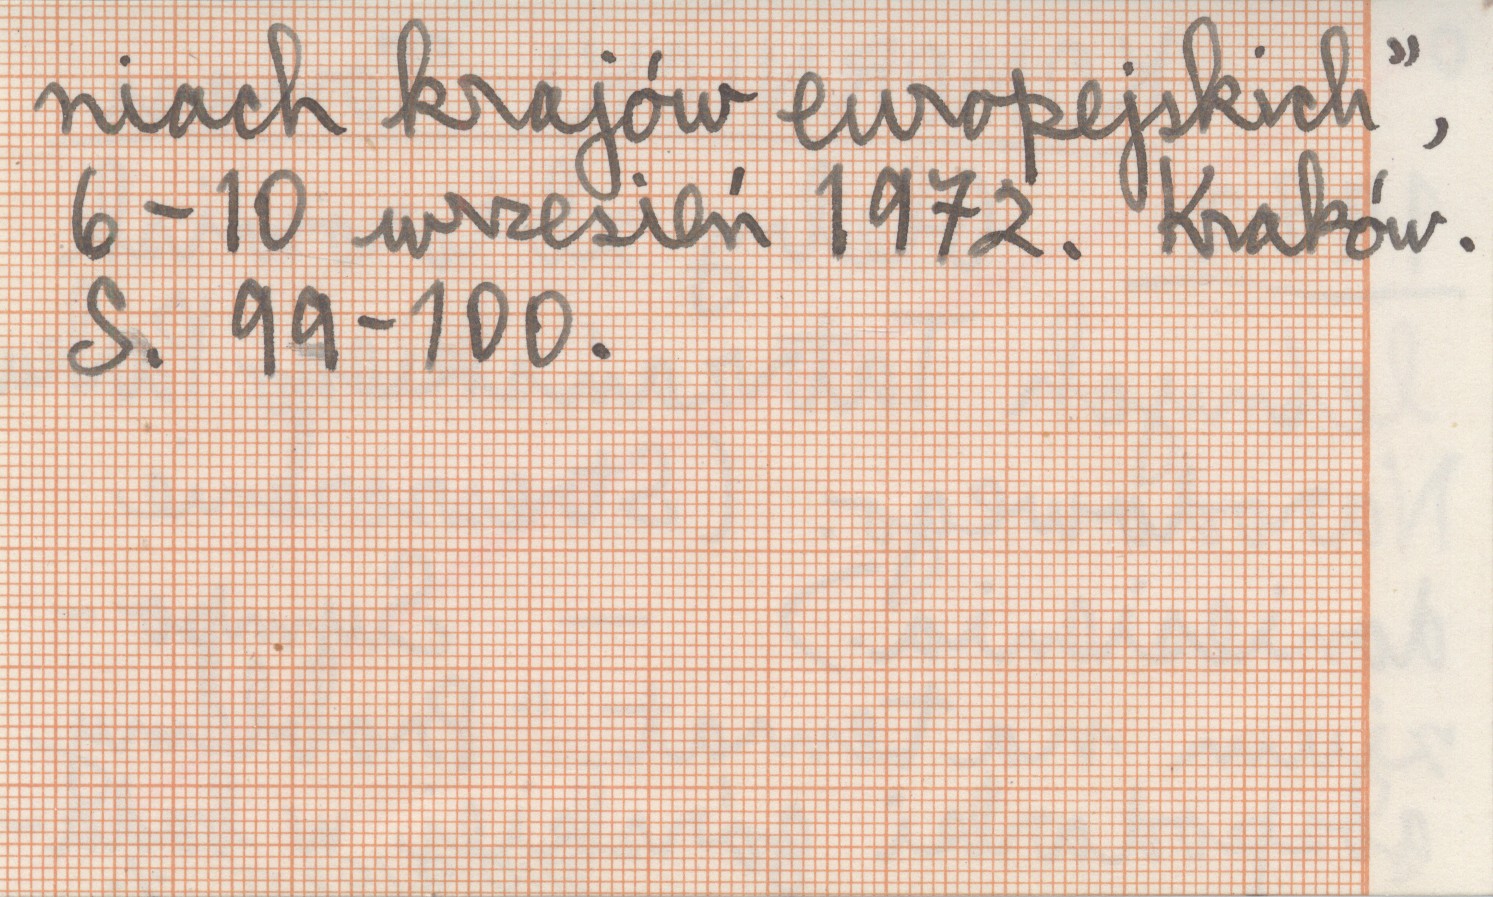 niach krajów europejskich",
6-10 wrzesień 1972. Kraków.
S. 99-100.